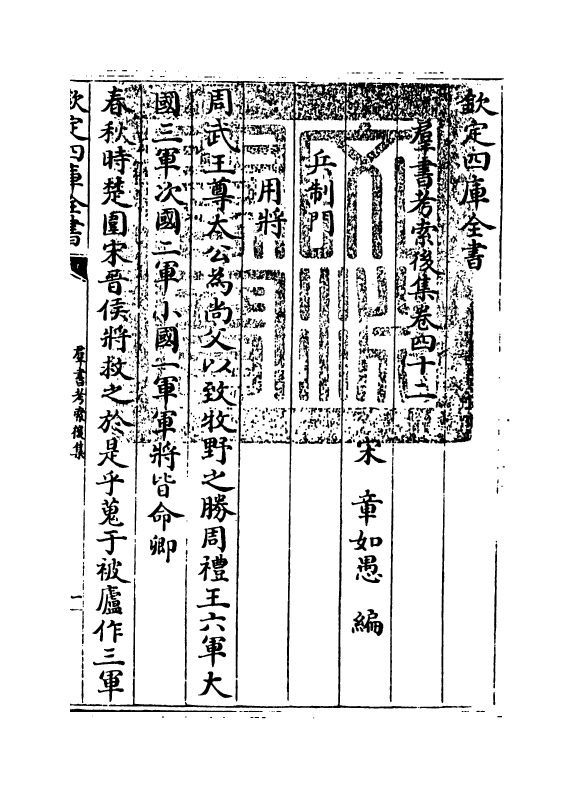 欽定四庫全書
羣書考索後集卷四十二
宋 章如愚 編
兵制門
用將
周武王尊太公為尚父以致牧野之勝周禮王六軍大
國三軍次國二軍小國一軍軍將皆命卿
春秋時楚圍宋晉侯將救之於是乎蒐于被廬作三軍
欽定四庫全書
羣書考索後集